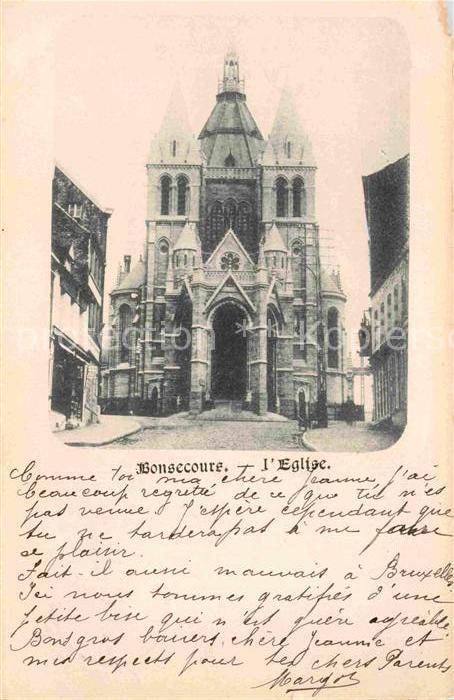 Bonsecours. l'Eglise.
Comme toi ma chère Jeanne, j'ai
beaucoup regretté de ce que tu n'es
pas venue. J'espère cependant que
tu ne tardera pas à me faire
ce plaisir.
Fait-il aussi mauvais à Bruxelles
Ici nous sommes gratifiés d'une
petite bise qui n'est guère agréable.
Bons gros baisers, chère Jeanne et
mes respects pour tes chers Parents
Margot